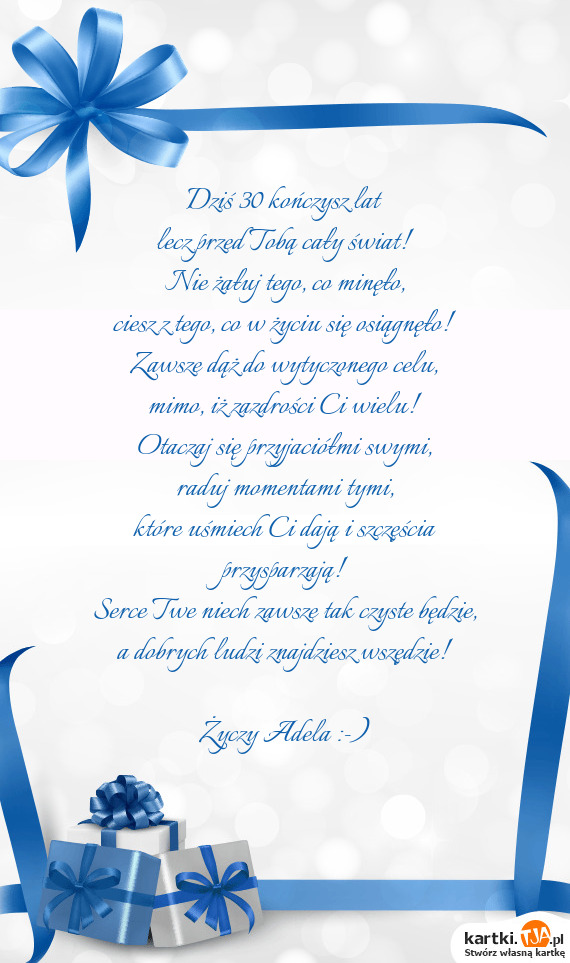 Dziś 30 kończysz lat
lecz przed Tobą cały świat!
Nie żałuj tego, co minęło,
ciesz z tego, co w życiu się osiągnęło!
Zawsze dąż do wytyczonego celu,
mimo, iż zazdrości Ci wielu!
Otaczaj się przyjaciółmi swymi,
raduj momentami tymi,
które uśmiech Ci dają i szczęścia
przysparzają!
Serce Twe niech zawsze tak czyste będzie,
a dobrych ludzi znajdziesz wszędzie!
Życzy Adela :-)
kartki.TJA.pl
Stwórz własną kartkę